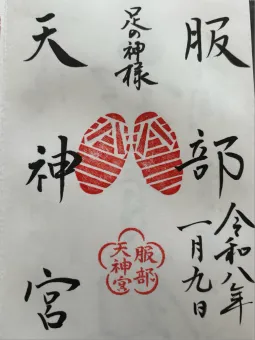 足の神様
服部
天神宮
令和八年
一月九日
服部
天神宮